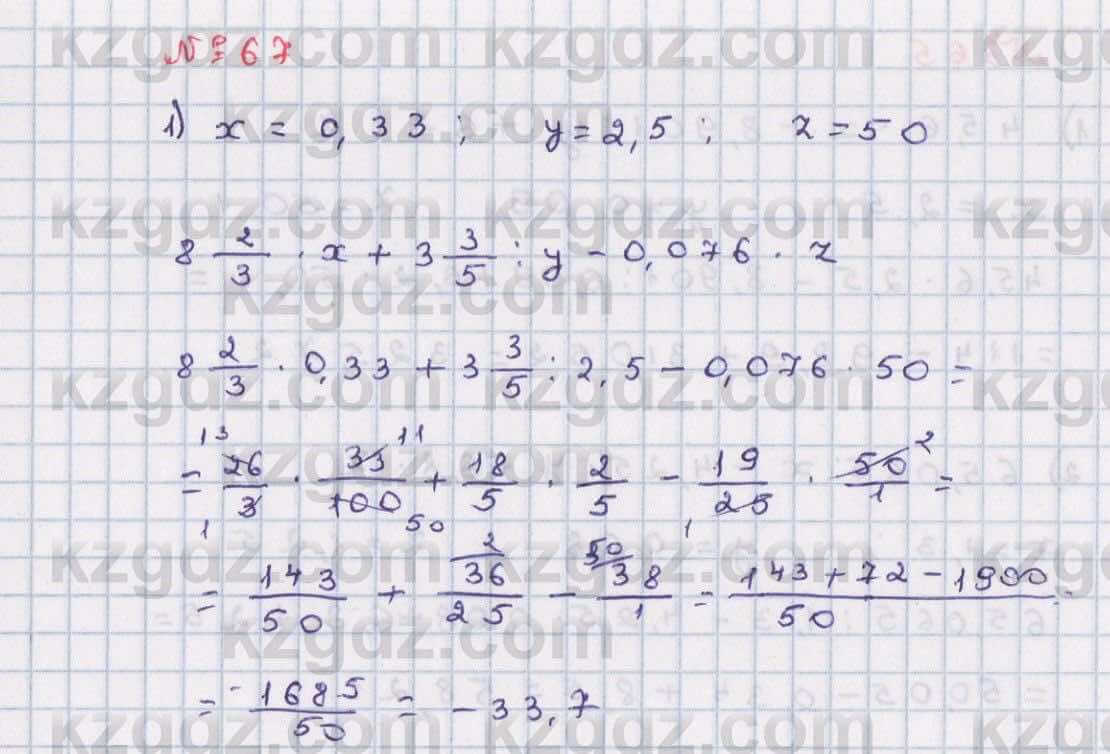 №67
1) x = 0,33 ; y = 2,5 ; z = 50
8 2/3 · x + 3 3/5 : y - 0,076 · z
8 2/3 · 0,33 + 3 3/5 : 2,5 - 0,076 · 50 =
= 26/3 · 33/100 + 18/5 · 2/5 - 19/25 · 50/1 =
= 143/50 + 36/25 - 38/1 = (143 + 72 - 1900)/50 =
= -1685/50 = -33,7
kzgdz.com